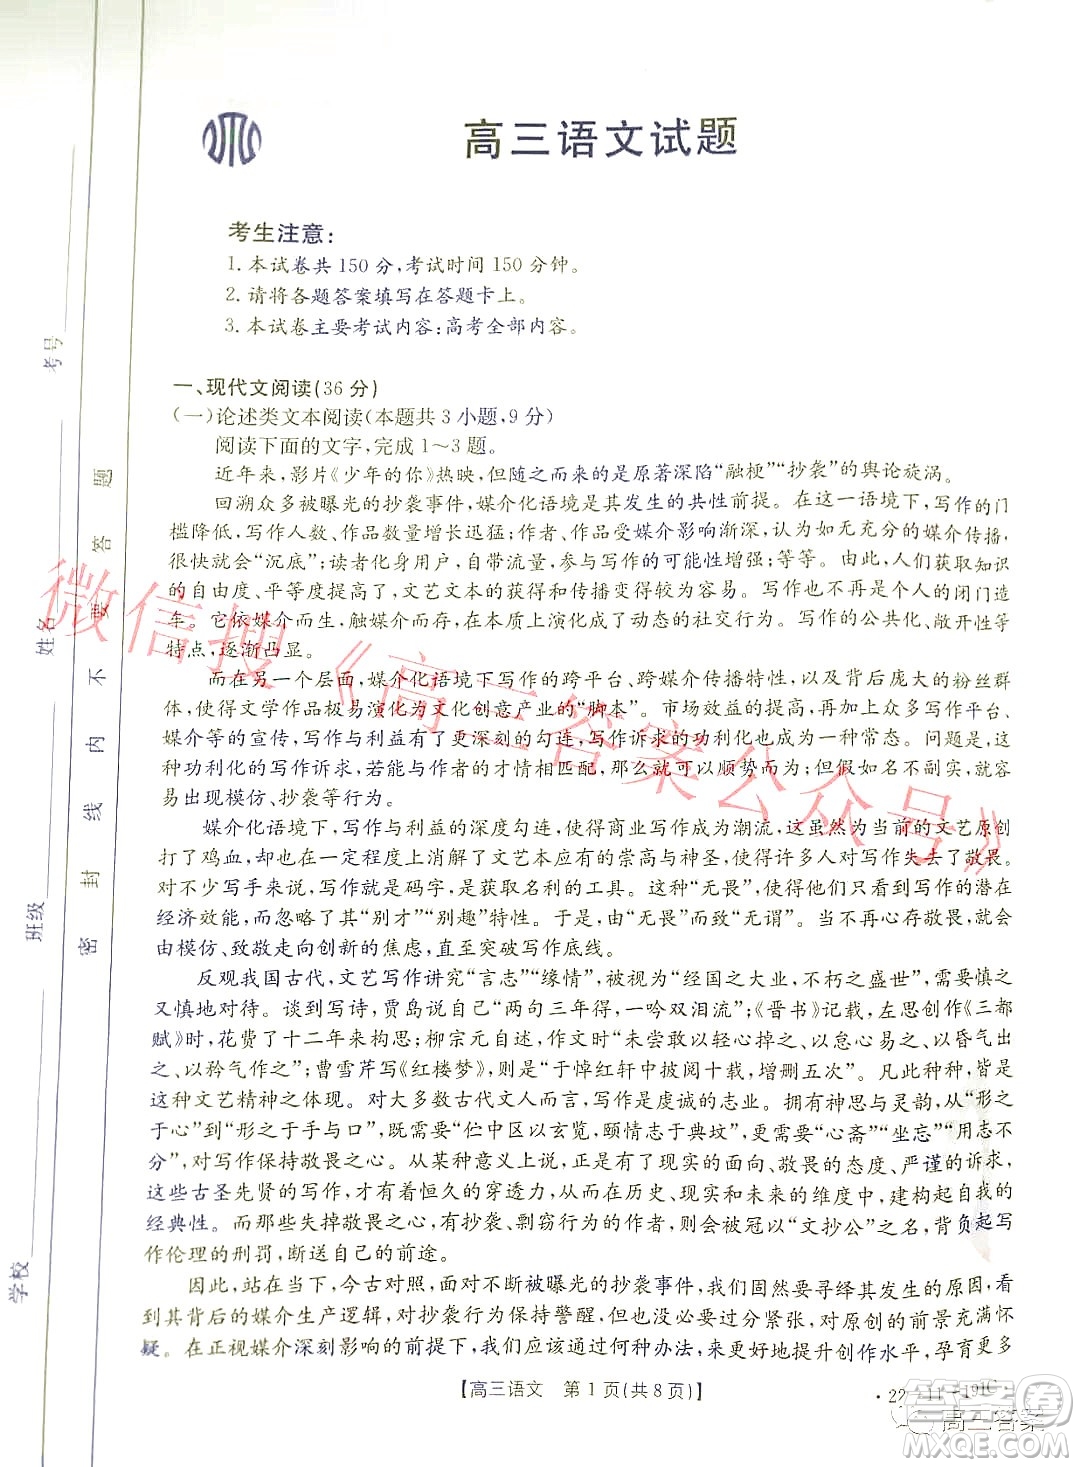 高三语文试题
考生注意：
1. 本试卷共 150 分，考试时间 150 分钟。
2. 请将各题答案填写在答题卡上。
3. 本试卷主要考试内容：高考全部内容。
一、现代文阅读(36 分)
(一)论述类文本阅读(本题共 3 小题，9 分)
阅读下面的文字，完成 1～3 题。
近年来，影片《少年的你》热映，但随之而来的是原著深陷“融梗”“抄袭”的舆论旋涡。
回溯众多被曝光的抄袭事件，媒介化语境是其发生的共性前提。在这一语境下，写作的门
槛降低，写作人数、作品数量增长迅猛；作者、作品受媒介影响渐深，认为如无充分的媒介传播，
很快就会“沉底”；读者化身用户，自带流量，参与写作的可能性增强；等等。由此，人们获取知识
的自由度、平等度提高了，文艺文本的获得和传播变得较为容易。写作也不再是个人的闭门造
车。它依媒介而生，触媒介而长，在本质上演化成了动态的社交行为。写作的公共化、敞开性等
特点，逐渐凸显。
而在另一个层面，媒介化语境下写作的跨平台、跨媒介传播特性，以及背后庞大的粉丝群
体，使得文学作品极易演化为文化创意产业的“脚本”。市场效益的提高，再加上众多写作平台、
媒介等的宣传，写作与利益有了更深刻的勾连，写作诉求的功利化也成为一种常态。问题是，这
种功利化的写作诉求，若能与作者的才情相匹配，那么就可以顺势而为；但假如名不副实，就容
易出现模仿、抄袭等行为。
媒介化语境下，写作与利益的深度勾连，使得商业写作成为潮流，这虽然为当前的文艺原创
打了鸡血，却也在一定程度上消解了文艺本应有的崇高与神圣，使得许多人对写作失去了敬畏。
对不少写手来说，写作就是码字，是获取名利的工具。这一“无畏”，使得他们只看到写作的潜在
经济效能，而忽略了其“别才”“别趣”特性。于是，由“无畏”而致“无谓”。当作者内心存敬畏，便会
由模仿、致敬走向创新的焦虑，直至突破写作底线。
反观我国古代，文艺写作讲究“言志”“缘情”，被视为“经国之大业，不朽之盛世”，需要慎之
又慎地对待。谈到写诗，贾岛说自己“两句三年得，一吟双泪流”；《晋书》记载，左思创作《三都
赋》时，花费了十二年来构思；柳宗元自述，作文时“未尝敢以轻心掉之、以怠心易之、以昏气出
之、以矜气作之”；曹雪芹写《红楼梦》，“于悼红轩中披阅十载，增删五次”。凡此种种，皆是敬畏
这种文艺精神之体现。对大多数古代文人而言，写作是虔诚的志业。拥有神思与灵韵，从“形之
于心”到“形之于手与口”，既需要“伫中区以玄览，颐情志于典坟”，更需要“心斋”“坐忘”“用志不
分”，对写作保持敬畏之心。从某种意义上说，正是有了现实的面向、敬畏的态度、严谨的诉求，
这些古圣先贤的写作，才具有着恒久的穿透力，从而在历史、现实和未来的维度中，建构起自我的
经典性。而那些失掉敬畏之心，有抄袭、剽窃行为的作者，则会被冠以“文抄公”之名，背负起写
作伦理的刑罚，断送自己的前途。
因此，站在当下，今古对照，面对不断被曝光的抄袭事件，我们固然要寻绎其发生的原因，看
到其背后的媒介生产逻辑，对抄袭行为保持警醒，但无须过分紧张，对原创的前景充满怀
疑。在正视媒介深刻影响的前提下，我们应该想尽一切办法，来更好地提升创作水平，孕育更多
【高三语文　第 1 页(共 8 页)】
学校
班级
姓名
考号
密 封 线 内 不 要 答 题
微信搜《高三答案公众号》
高三答案
答案圈
MXQE.COM